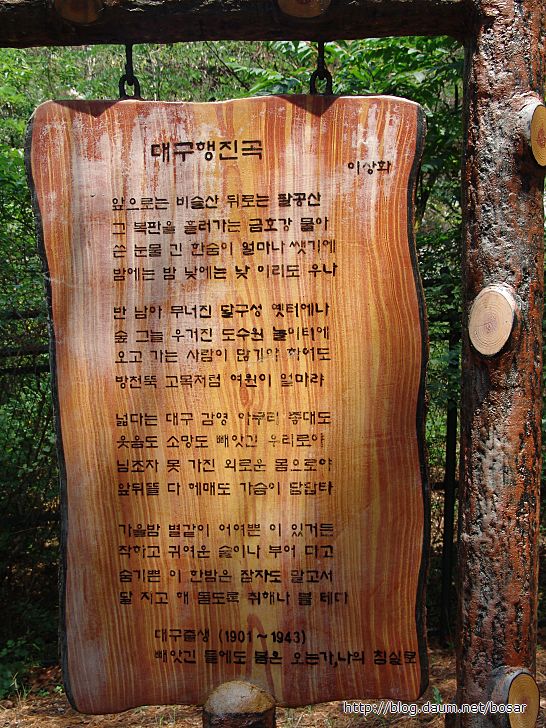 대구행진곡
이상화
앞으로는 비슬산 뒤로는 팔공산
그 복판을 흘러가는 금호강 물아
쓴 눈물 긴 한숨이 얼마나 쌧기에
밤에는 밤 낮에는 낮 이리도 우나
반 남아 무너진 달구성 옛터에나
숲 그늘 우거진 도수원 놀이터에
오고 가는 사람이 많기야 하여도
방천뚝 고목처럼 여윈이 얼마랴
넓다는 대구 감영 아무리 좋대도
웃음도 소망도 빼앗긴 우리로야
님조차 못 가진 외로운 몸으로야
앞뒤뜰 다 헤매도 가슴이 답답타
가을밤 별같이 어여쁜 이 있거든
착하고 귀여운 술이나 부어 다고
숨기쁜 이 한밤은 잠자도 말고서
달 지고 해 돋도록 취해나 볼 테다
대구출생 (1901~1943)
빼앗긴 들에도 봄은 오는가,나의 침실로
http://blog.daum.net/bosar